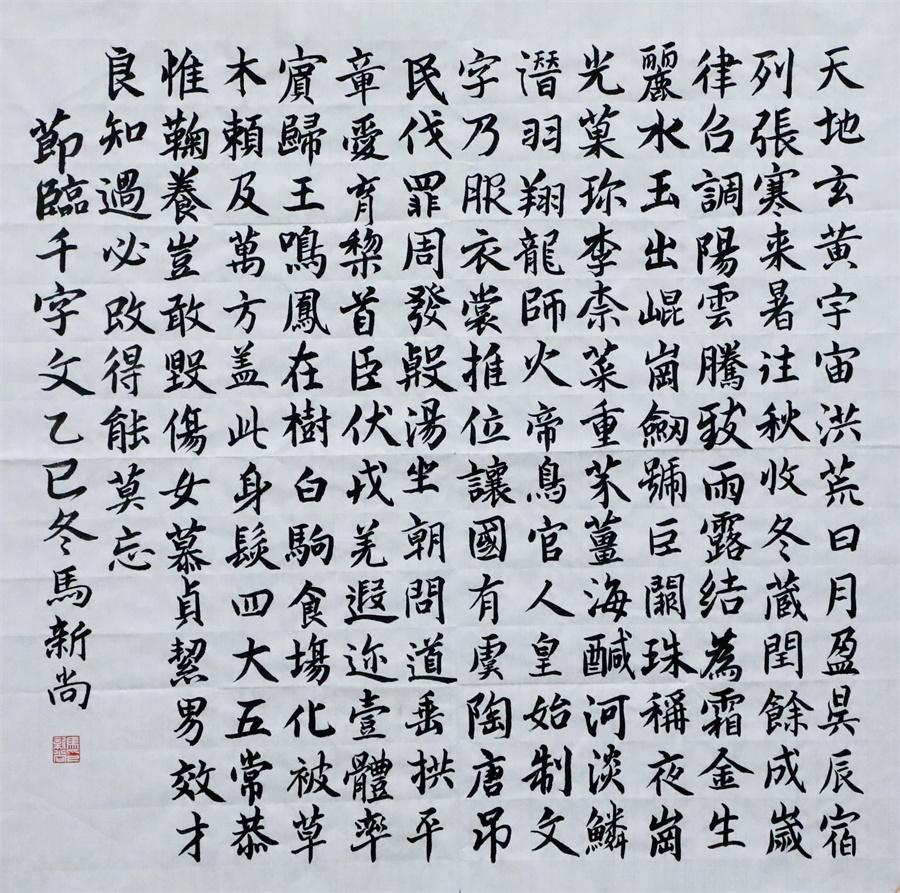 天地玄黄宇宙洪荒日月盈昃辰宿
列張寒来暑往秋收冬蔵閏餘成嵗
律吕調陽雲騰致雨露結為霜金生
麗水玉出崐崗劔號巨闕珠稱夜崗
光菓珎李柰菜重芥薑海醎河淡鱗
潛羽翔龍師火帝鳥官人皇始制文
字乃服衣裳推位讓國有虞陶唐吊
民伐罪周發殷湯坐朝問道垂拱平
章愛育黎首臣伏戎羌遐迩壹體率
賓歸王鳴鳳在樹白駒食場化被草
木頼及萬方盖此身髮四大五常恭
惟鞠養豈敢毀傷女慕貞絜男效才
良知過必改得能莫忘
節臨千字文乙巳冬馬新尚